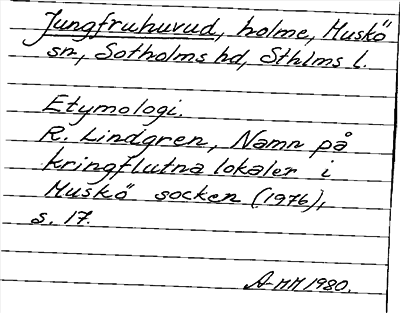 Jungfruhuvud, holme, Muskö
sn, Sotholms hd, Sthlms l.
Etymologi.
R. Lindgren, Namn på
kringflutna lokaler i
Muskö socken (1976),
s. 17.
A-MM 1980.